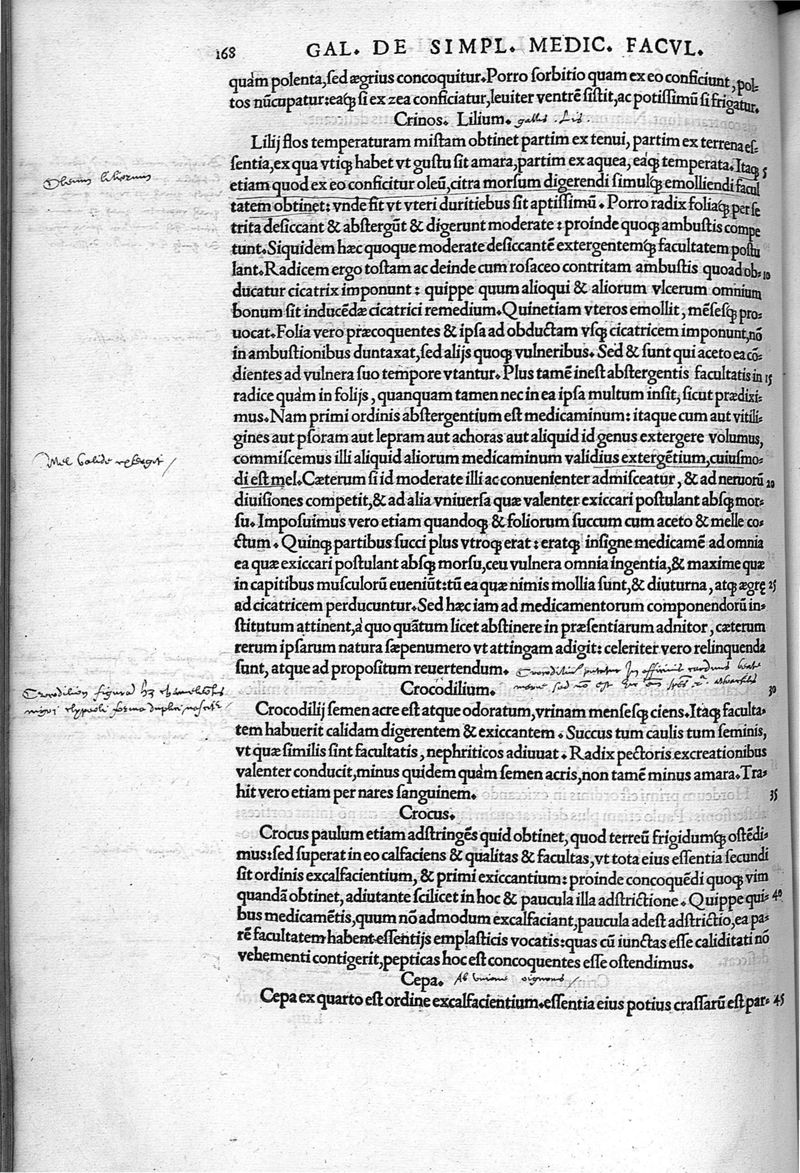 168 GAL. DE SIMPL. MEDIC. FACVL.
quàm polenta, sed ægrius concoquitur. Porro sorbitio quam ex eo conficiunt, pol-
tos nūcupatur: eaq́; si ex zea conficiatur, leuiter ventrē sistit, ac potissimū si frigatur.
Crinos. Lilium. gallis . Lis
Lilij flos temperaturam mistam obtinet partim ex tenui, partim ex terrena es-
sentia, ex qua vtiq; habet vt gustu sit amara, partim ex aquea, eaq́; temperata. Itaq; 5
etiam quod ex eo conficitur oleū, citra morsum digerendi simulq; emolliendi facul
Oleum liliorum
tatem obtinet: vnde fit vt vteri duritiebus sit aptissimū. Porro radix foliaq; per se
trita desiccant & abstergūt & digerunt moderate: proinde quoq; ambustis compe
tunt. Siquidem hæc quoque moderate desiccantē extergentemq; facultatem postu
lant. Radicem ergo tostam ac deinde cum rosaceo contritam ambustis quoad ob- 10
ducatur cicatrix imponunt: quippe quum alioqui & aliorum vlcerum omnium
bonum sit inducēdæ cicatrici remedium. Quinetiam vteros emollit, mēsesq; pro-
uocat. Folia vero præcoquentes & ipsa ad obductam vsq; cicatricem imponunt, nō
in ambustionibus duntaxat, sed alijs quoq; vulneribus. Sed & sunt qui aceto ea cō-
dientes ad vulnera suo tempore vtantur. Plus tamē inest abstergentis facultatis in 15
radice quàm in folijs, quanquam tamen nec in ea ipsa multum insit, sicut prædixi-
mus. Nam primi ordinis abstergentium est medicaminum: itaque cum aut vitili-
gines aut psoram aut lepram aut achoras aut aliquid id genus extergere volumus,
commiscemus illi aliquid aliorum medicaminum validius extergētium, cuiusmo-
Mel valide
di est mel. Cæterum si id moderate illi ac conuenienter admisceatur, & ad neruorū 20
diuisiones competit, & ad alia vniuersa quæ valenter exiccari postulant absq; mor-
su. Imposuimus vero etiam quandoq; & foliorum succum cum aceto & melle co-
ctum. Quinq; partibus succi plus vtroq; erat: eratq; insigne medicamē ad omnia
ea quæ exiccari postulant absq; morsu, ceu vulnera omnia ingentia, & maxime quæ
in capitibus musculorū eueniūt: tū ea quæ nimis mollia sunt, & diuturna, atq; ægrę 25
ad cicatricem perducuntur. Sed hæc iam ad medicamentorum componendorū in-
stitutum attinent, à quo quātum licet abstinere in præsentiarum adnitor, cæterum
rerum ipsarum natura sæpenumero vt attingam adigit: celeriter vero relinquenda
sunt, atque ad propositum reuertendum. Crocodilium putatur in officinis carduus
sed non est
Crocodilium. 30
Crocodilion figura
nigri forma
Crocodilij semen acre est atque odoratum, vrinam mensesq; ciens. Itaq; faculta-
tem habuerit calidam digerentem & exiccantem. Succus tum caulis tum seminis,
vt quæ similis sint facultatis, nephriticos adiuuat. Radix pectoris excreationibus
valenter conducit, minus quidem quàm semen acris, non tamē minus amara. Tra-
hit vero etiam per nares sanguinem. 35
Crocus.
Crocus paulum etiam adstringēs quid obtinet, quod terreū frigidumq; ostēdi-
mus: sed superat in eo calfaciens & qualitas & facultas, vt tota eius essentia secundi
sit ordinis excalfacientium, & primi exiccantium: proinde concoquēdi quoq; vim
quandā obtinet, adiutante scilicet in hoc & paucula illa adstrictione. Quippe qui- 40
bus medicamētis, quum nō admodum excalfaciant, paucula adest adstrictio, ea pa-
rē facultatem habent essentijs emplasticis vocatis: quas cū iunctas esse caliditati nō
vehementi contigerit, pepticas hoc est concoquentes esse ostendimus.
Cepa.
Cepa ex quarto est ordine excalfacientium. essentia eius potius crassarū est par- 45